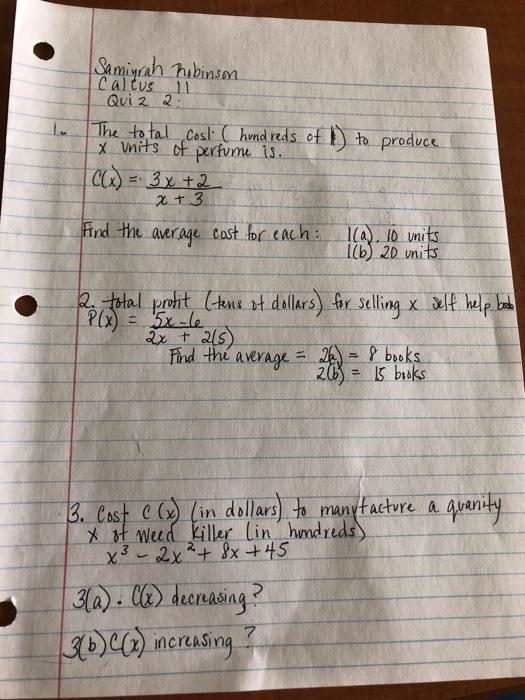 Samiyrah Robinson
Calcus 11
Quiz 2:
1. The total cost ( hundreds of $) to produce
x units of perfume is.
C(x) = 3x + 2
x + 3
Find the average cost for each: 1(a). 10 units
1(b) 20 units
2. total profit (tens of dollars) for selling x self help books
P(x) = 5x-6
2x + 2(5)
Find the average = 2(a) = 8 books
2(b) = 15 books
3. Cost C(x) (in dollars) to manufacture a quanity
x of weed killer (in hundreds)
x³ - 2x² + 8x + 45
3(a). C(x) decreasing?
3(b) C(x) increasing?